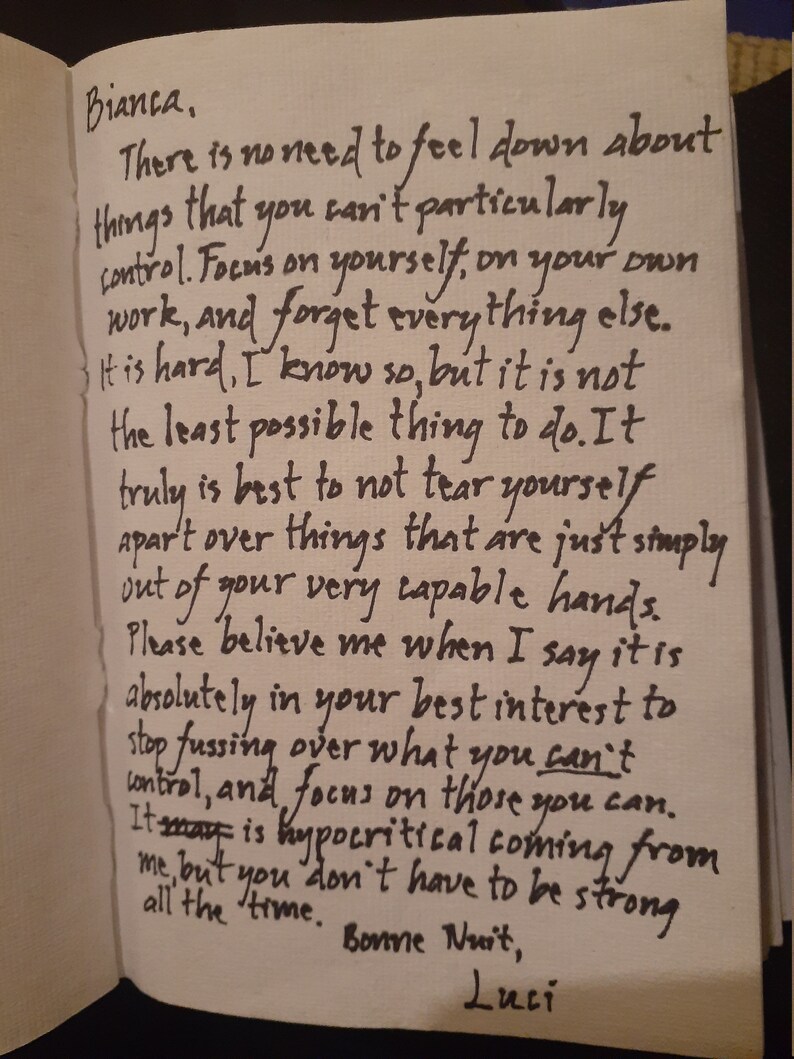 Bianca,
There is no need to feel down about
things that you can't particularly
control. Focus on yourself, on your own
work, and forget everything else.
It is hard, I know so, but it is not
the least possible thing to do. It
truly is best to not tear yourself
apart over things that are just simply
out of your very capable hands.
Please believe me when I say it is
absolutely in your best interest to
stop fussing over what you can't
control, and focus on those you can.
It may is hypocritical coming from
me, but you don't have to be strong
all the time.
Bonne Nuit,
Luci